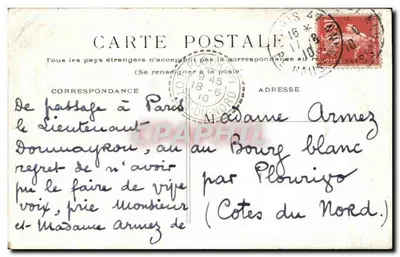 CARTE POSTALE
Tous les pays étrangers n'acceptent pas la correspondance au
(Se renseigner à la poste)
CORRESPONDANCE
ADRESSE
De passage à Paris
le Lieutenant
regret de n'avoir
pu le faire de vive
voix, prie Monsieur
et Madame Armez de
Madame Armez
au Bourg blanc
par Plourivo
(Cotes du Nord.)
9 45
18 - 6
10